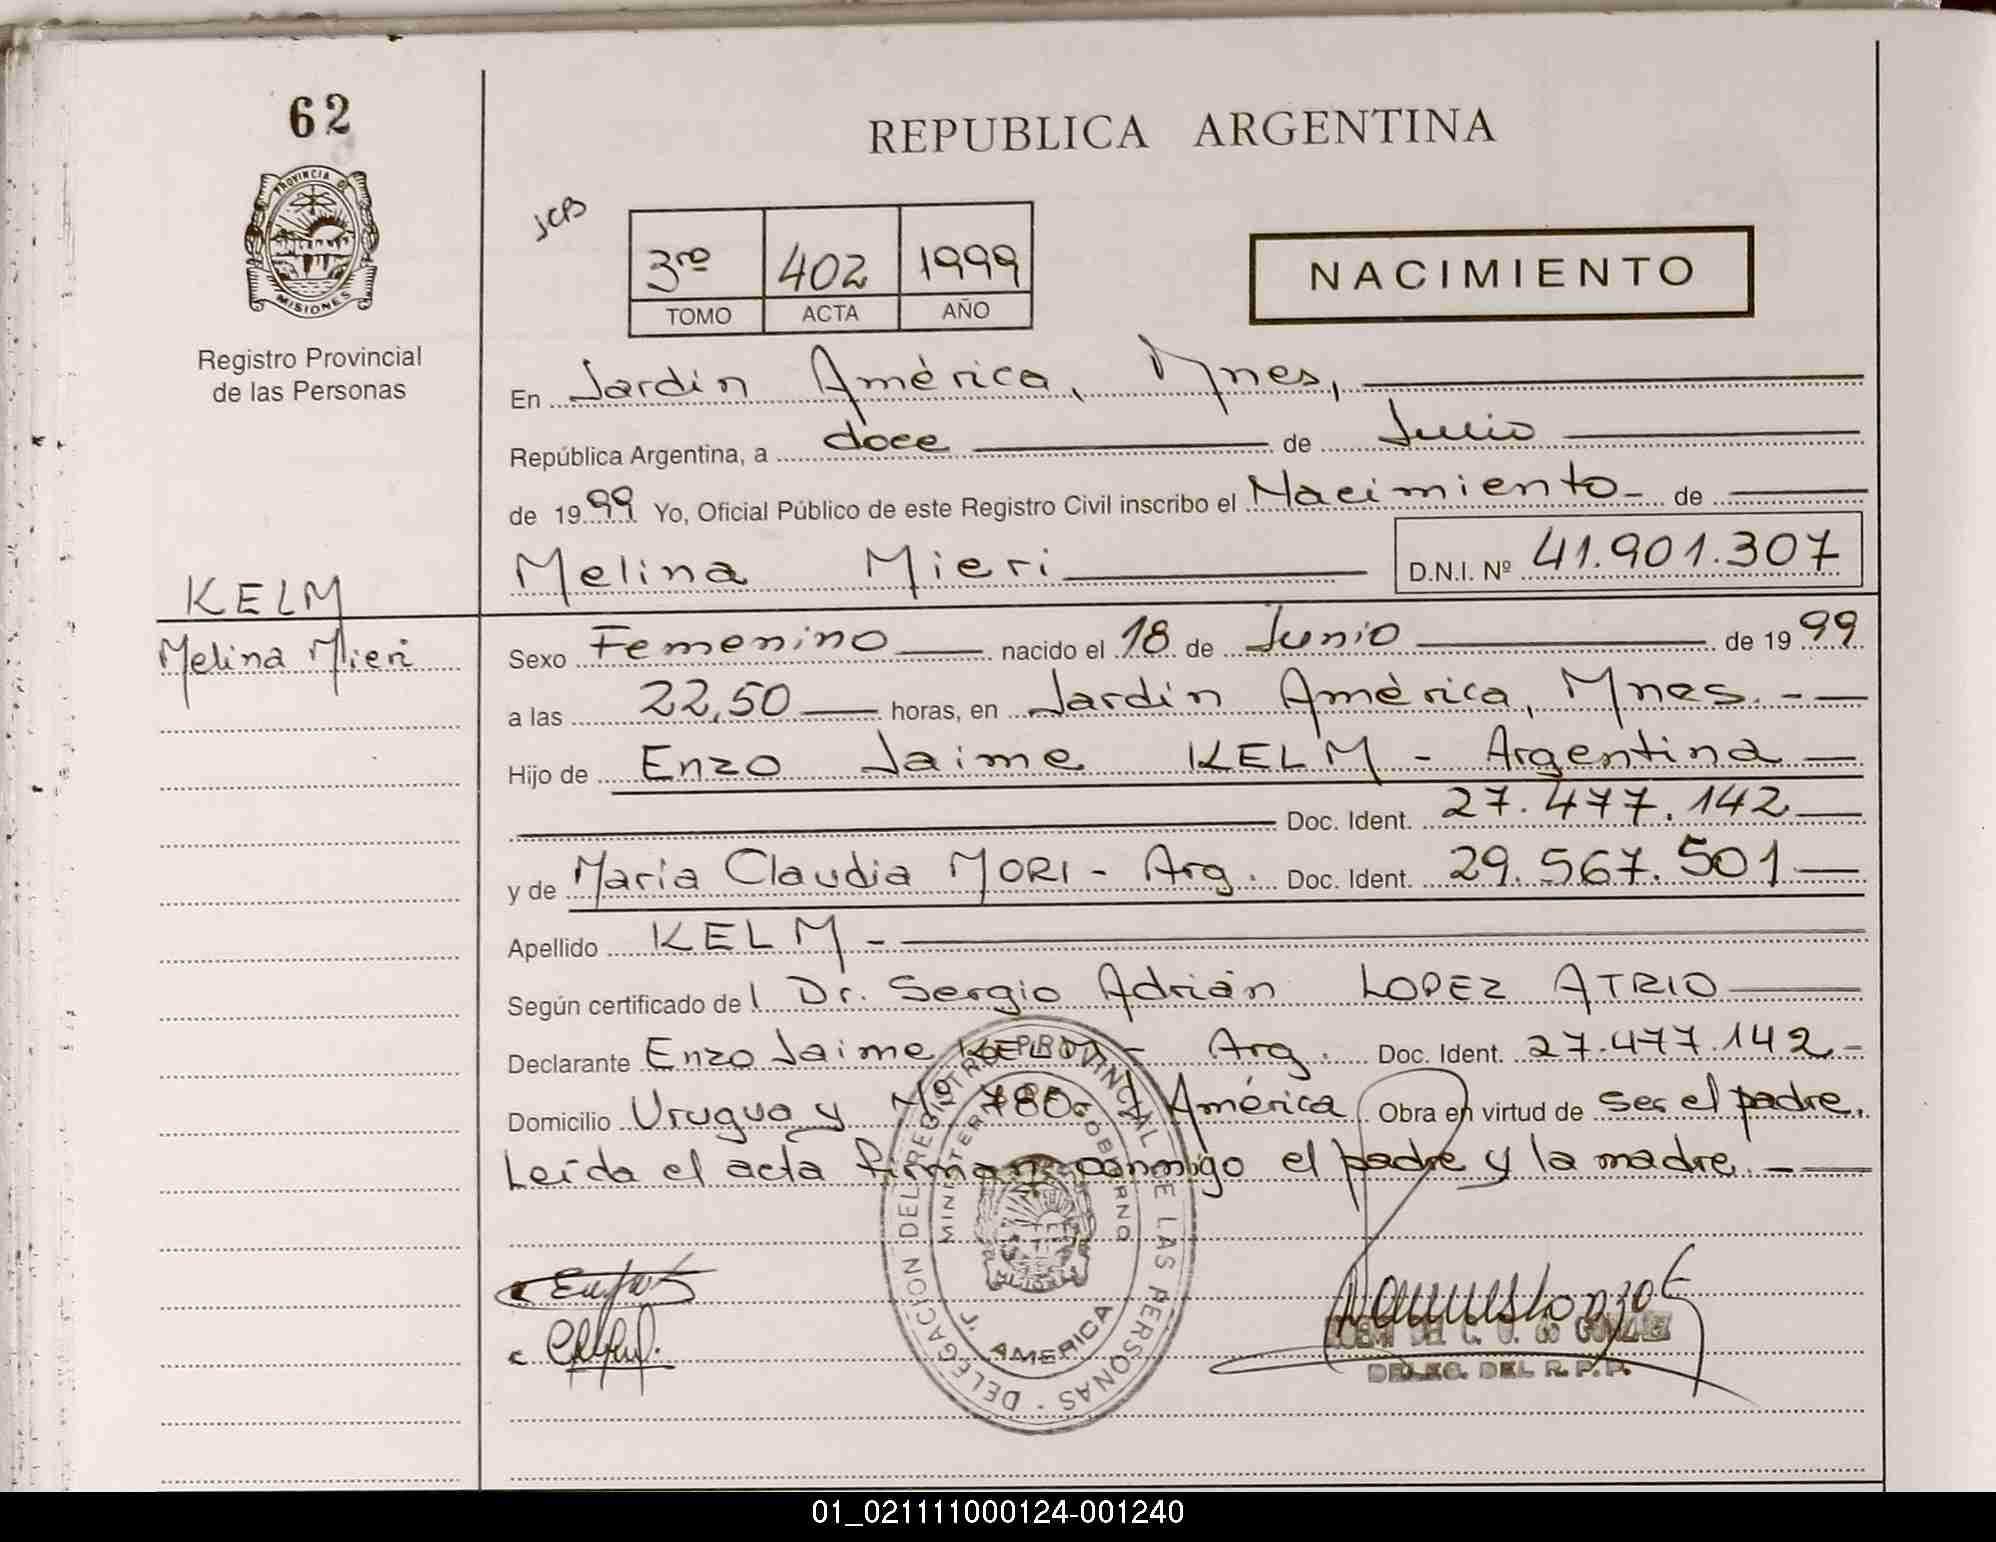 62
PROVINCIA DE
MISIONES
Registro Provincial
de las Personas
KELM
Melina Mieri
REPUBLICA ARGENTINA
JCB
3ro 402 1999
TOMO ACTA AÑO
NACIMIENTO
En Jardín América, Mnes,
República Argentina, a doce de Julio
de 1999 Yo, Oficial Público de este Registro Civil inscribo el Nacimiento - de
Melina Mieri D.N.I. Nº 41.901.307
Sexo Femenino nacido el 18 de Junio de 1999
a las 22,50 horas, en Jardín América, Mnes. -
Hijo de Enzo Jaime KELM - Argentina
Doc. Ident. 27.477.142
y de Maria Claudia MORI - Arg. Doc. Ident. 29.567.501
Apellido KELM -
Según certificado del Dr. Sergio Adrián LOPEZ ATRIO
Declarante Enzo Jaime KELM - Arg. Doc. Ident. 27.477.142 -
Domicilio Uruguay Nº 780- J América Obra en virtud de ser el padre.
Leída el acta firman conmigo el padre y la madre. -
DELEGACION DEL REGISTRO PROVINCIAL DE LAS PERSONAS -
MINISTERIO DE GOBIERNO
J. AMERICA
DELEG. DEL R. P. P.
01_021111000124-001240